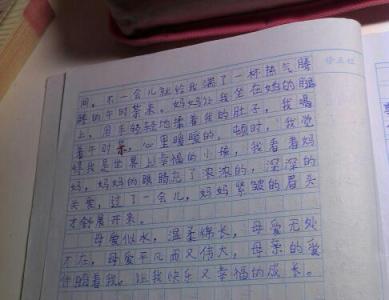 间。不一会儿就给我端了一杯热气腾
腾的午时茶来。妈妈让我坐在妈妈的腿
上，用手轻轻地揉着我的肚子，我喝
着午时茶，心里暖暖的。顿时，我觉
我是世界上幸福的小孩，我看着妈
妈，妈妈的眼睛充了浓浓的，深深的
关爱，过了一会儿，妈妈紧皱的眉头
才舒展开来。
母爱似水，温柔绵长，母爱无处
不在，母爱平凡而又伟大，母亲的爱
伴随着我。让我快乐又幸福的成长。